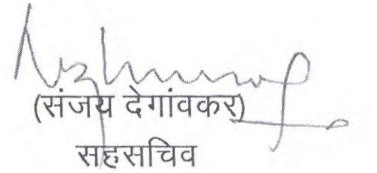 (संजय देगांवकर)
सहसचिव